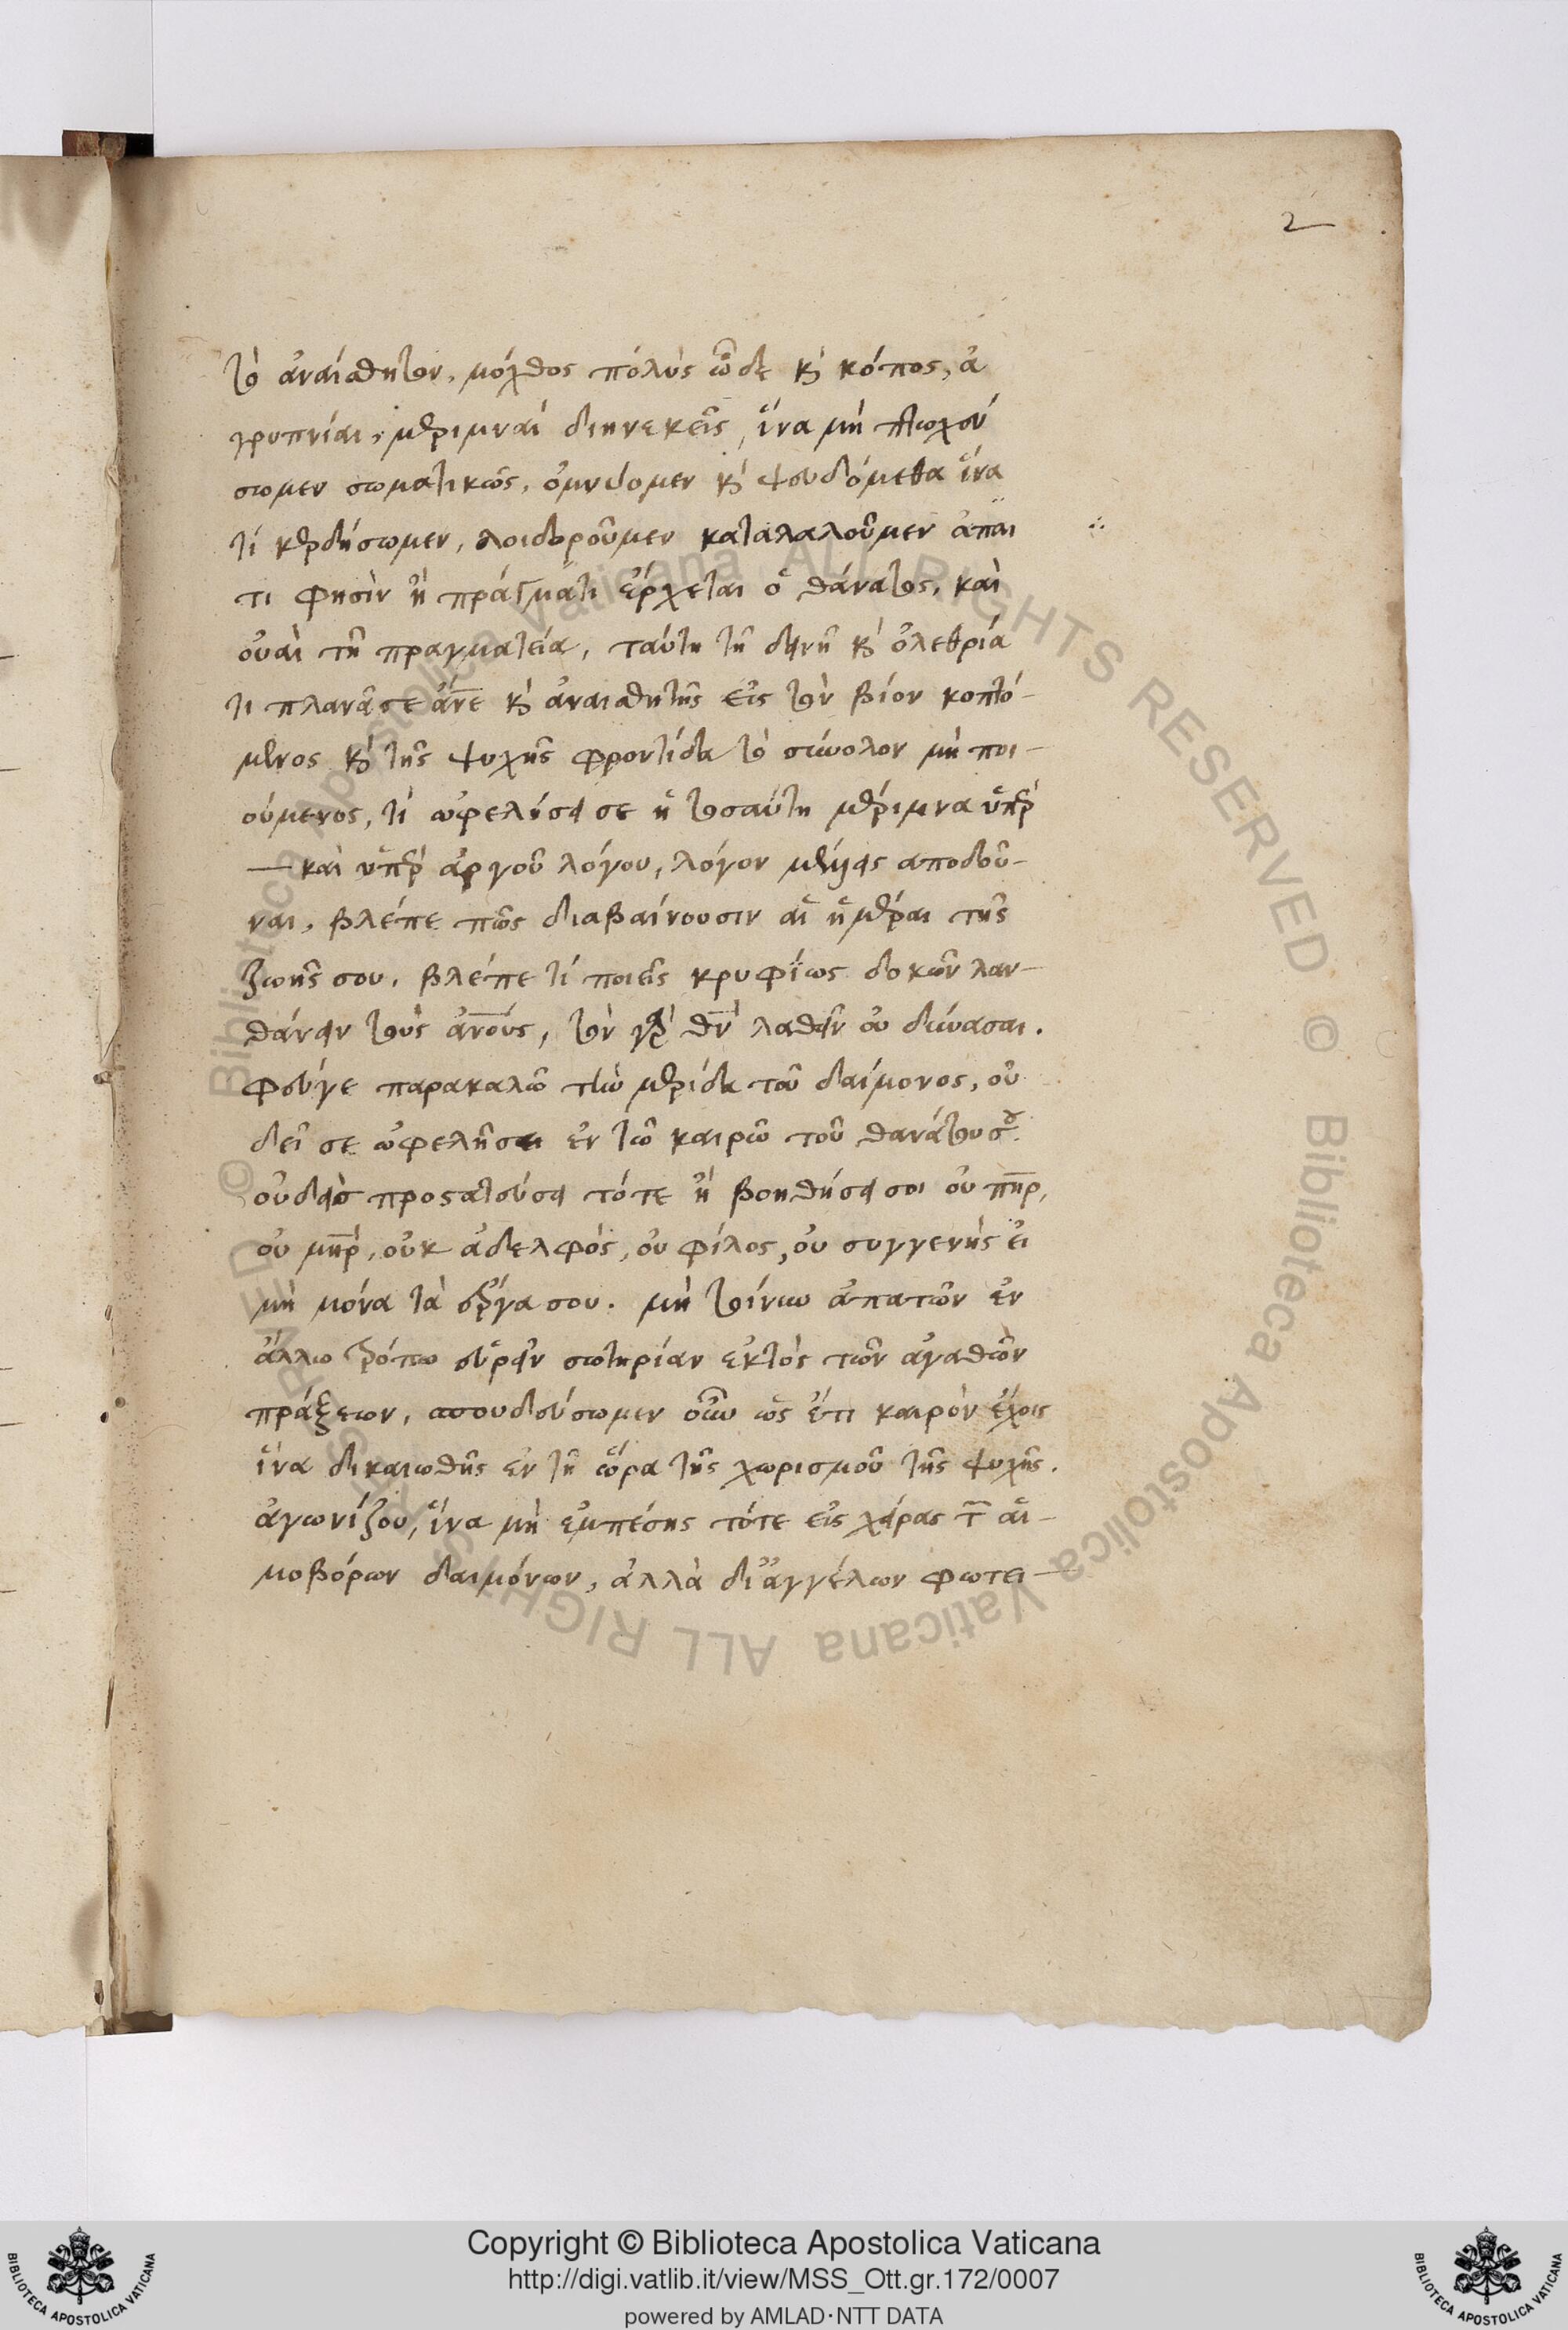 2
τὸ ἀναίσθητον, μόχθος πόλὺς ὧδε κὶ κόπος, ἀ
γρυπνίαι, μέριμναί διηνεκεῖς, ἵνα μὴ πτωχεύ
σωμεν σωματικῶς, ὀμνύομεν κὶ ψευδόμεθα ἵνα
τί κερδήσωμεν, λοιδοροῦμεν καταλαλοῦμεν
τι φησὶν ἢ πράγματι ἔρχεται ὁ θάνατος, καὶ
οὐαὶ τῆ πραγματεία, ταύτη τῆ δεινῆ κὶ ὀλεθρία
τι πλανᾶσε ἄνε κὶ ἀναισθητῆς εἰς τὸν βίον κοπτό-
μενος κὶ τῆς ψυχῆς φροντίδα τὸ σύνολον μὴ ποι-
ούμενος, τί ὠφελήσει σε ἡ τοσαύτη μέριμνα ὑπὲρ
— καὶ ὑπὲρ ἀργοῦ λόγου, λόγον μέλλεις αποδοῦ-
ναι, βλέπε πῶς διαβαίνουσιν αἱ ἡμέραι τῆς
ζωῆς σου, βλέπε τί ποιεῖς κρυφίως δοκῶν λαν-
θάνειν τοὺς ἀνους, τὸν γὰρ θν λαθεῖν οὐ δύνασαι.
φεύγε παρακαλῶ τὴν μερίδα τοῦ δαίμονος, οὐ
δεῖ σε ὠφελῆσαι ἐν τῶ καιρῶ τοῦ θανάτου σου.
οὐδεὶς προστατεύσει τότε ἢ βοηθήσει σοι οὐ πηρ,
οὐ μηρ, οὐκ ἀδελφός, οὐ φίλος, οὐ συγγενὴς εἰ
μὴ μόνα τὰ ἔργα σου. μὴ τοίνυν ἀπατῶν ἐν
ἄλλω τρόπω εὑρεῖν σωτηρίαν ἐκτὸς τῶν ἀγαθῶν
πράξεων, σπουδεύσωμεν οὖν ὡς ἔτι καιρὸν ἔχοις
ἵνα δικαιωθῆς ἐν τῆ ὥρα τῆς χωρισμοῦ τῆς ψυχῆς.
ἀγωνίζου, ἵνα μὴ ἐμπέσης τότε εἰς χεῖρας τ αἱ-
μοβόρων δαιμόνων, ἀλλὰ δι ἀγγέλων φωτει-
© Biblioteca Apostolica Vaticana ALL RIGHTS RESERVED © Biblioteca Apostolica Vaticana ALL RIGHTS RESERVED
Copyright © Biblioteca Apostolica Vaticana
http://digi.vatlib.it/view/MSS_Ott.gr.172/0007
powered by AMLAD·NTT DATA
BIBLIOTECA APOSTOLICA VATICANA
BIBLIOTECA APOSTOLICA VATICANA